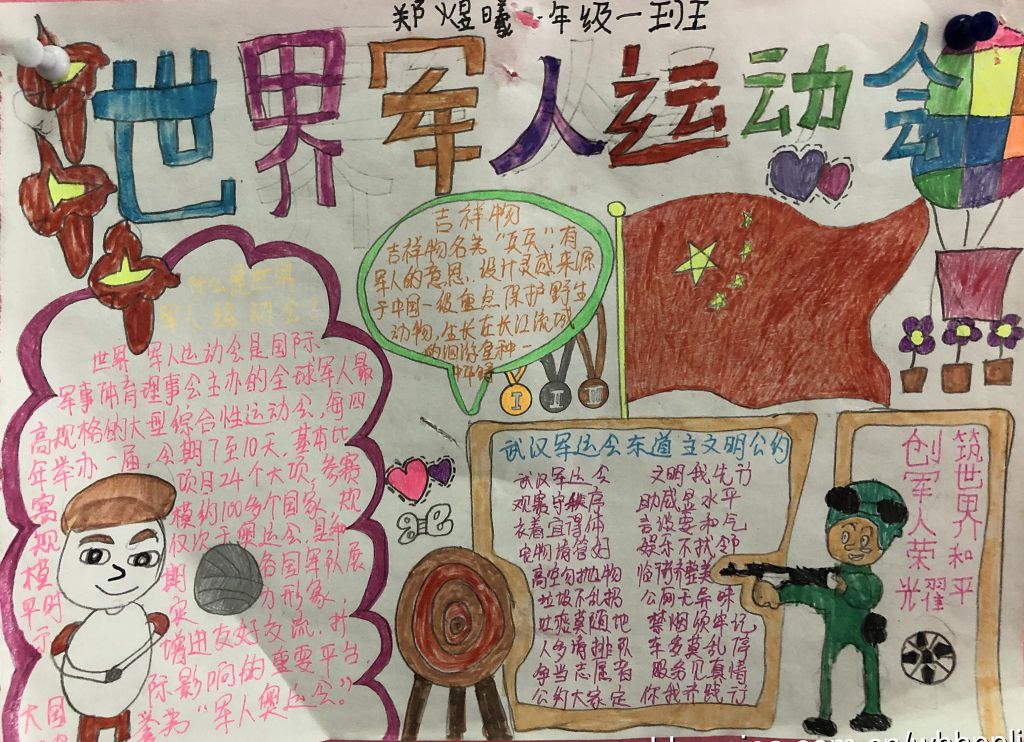 郑煜曦 一年级一班
世界军人运动会
什么是世界
军人运动会?
世界军人运动会是国际
军事体育理事会主办的全球军人最
高规格的大型综合性运动会,每四
年举办一届,会期7至10天,基本比
赛项目24个大项,参赛
规模约100多个国家,规
模仅次于奥运会,是和
平时期各国军队展
示实力形象,
增进友好交流,扩
大国际影响的重要平台,
誉为“军人奥运会”。
吉祥物
吉祥物名为“兵兵”,有
军人的意思,设计灵感来源
于中国一级重点保护野生
动物,生长在长江流域
的洄游鱼种一
中华鲟
I
II
III
武汉军运会东道主文明公约
武汉军运会 文明我先行
观赛守秩序 助威显水平
衣着宜得体 言谈要和气
宠物请管好 娱乐不扰邻
高空勿抛物 临街齐整美
垃圾不乱扔 公厕无异味
吐痰莫随地 禁烟须牢记
人多请排队 车多莫乱停
争当志愿者 服务见真情
公约大家定 你我齐践行
筑世界和平
创军人荣光耀